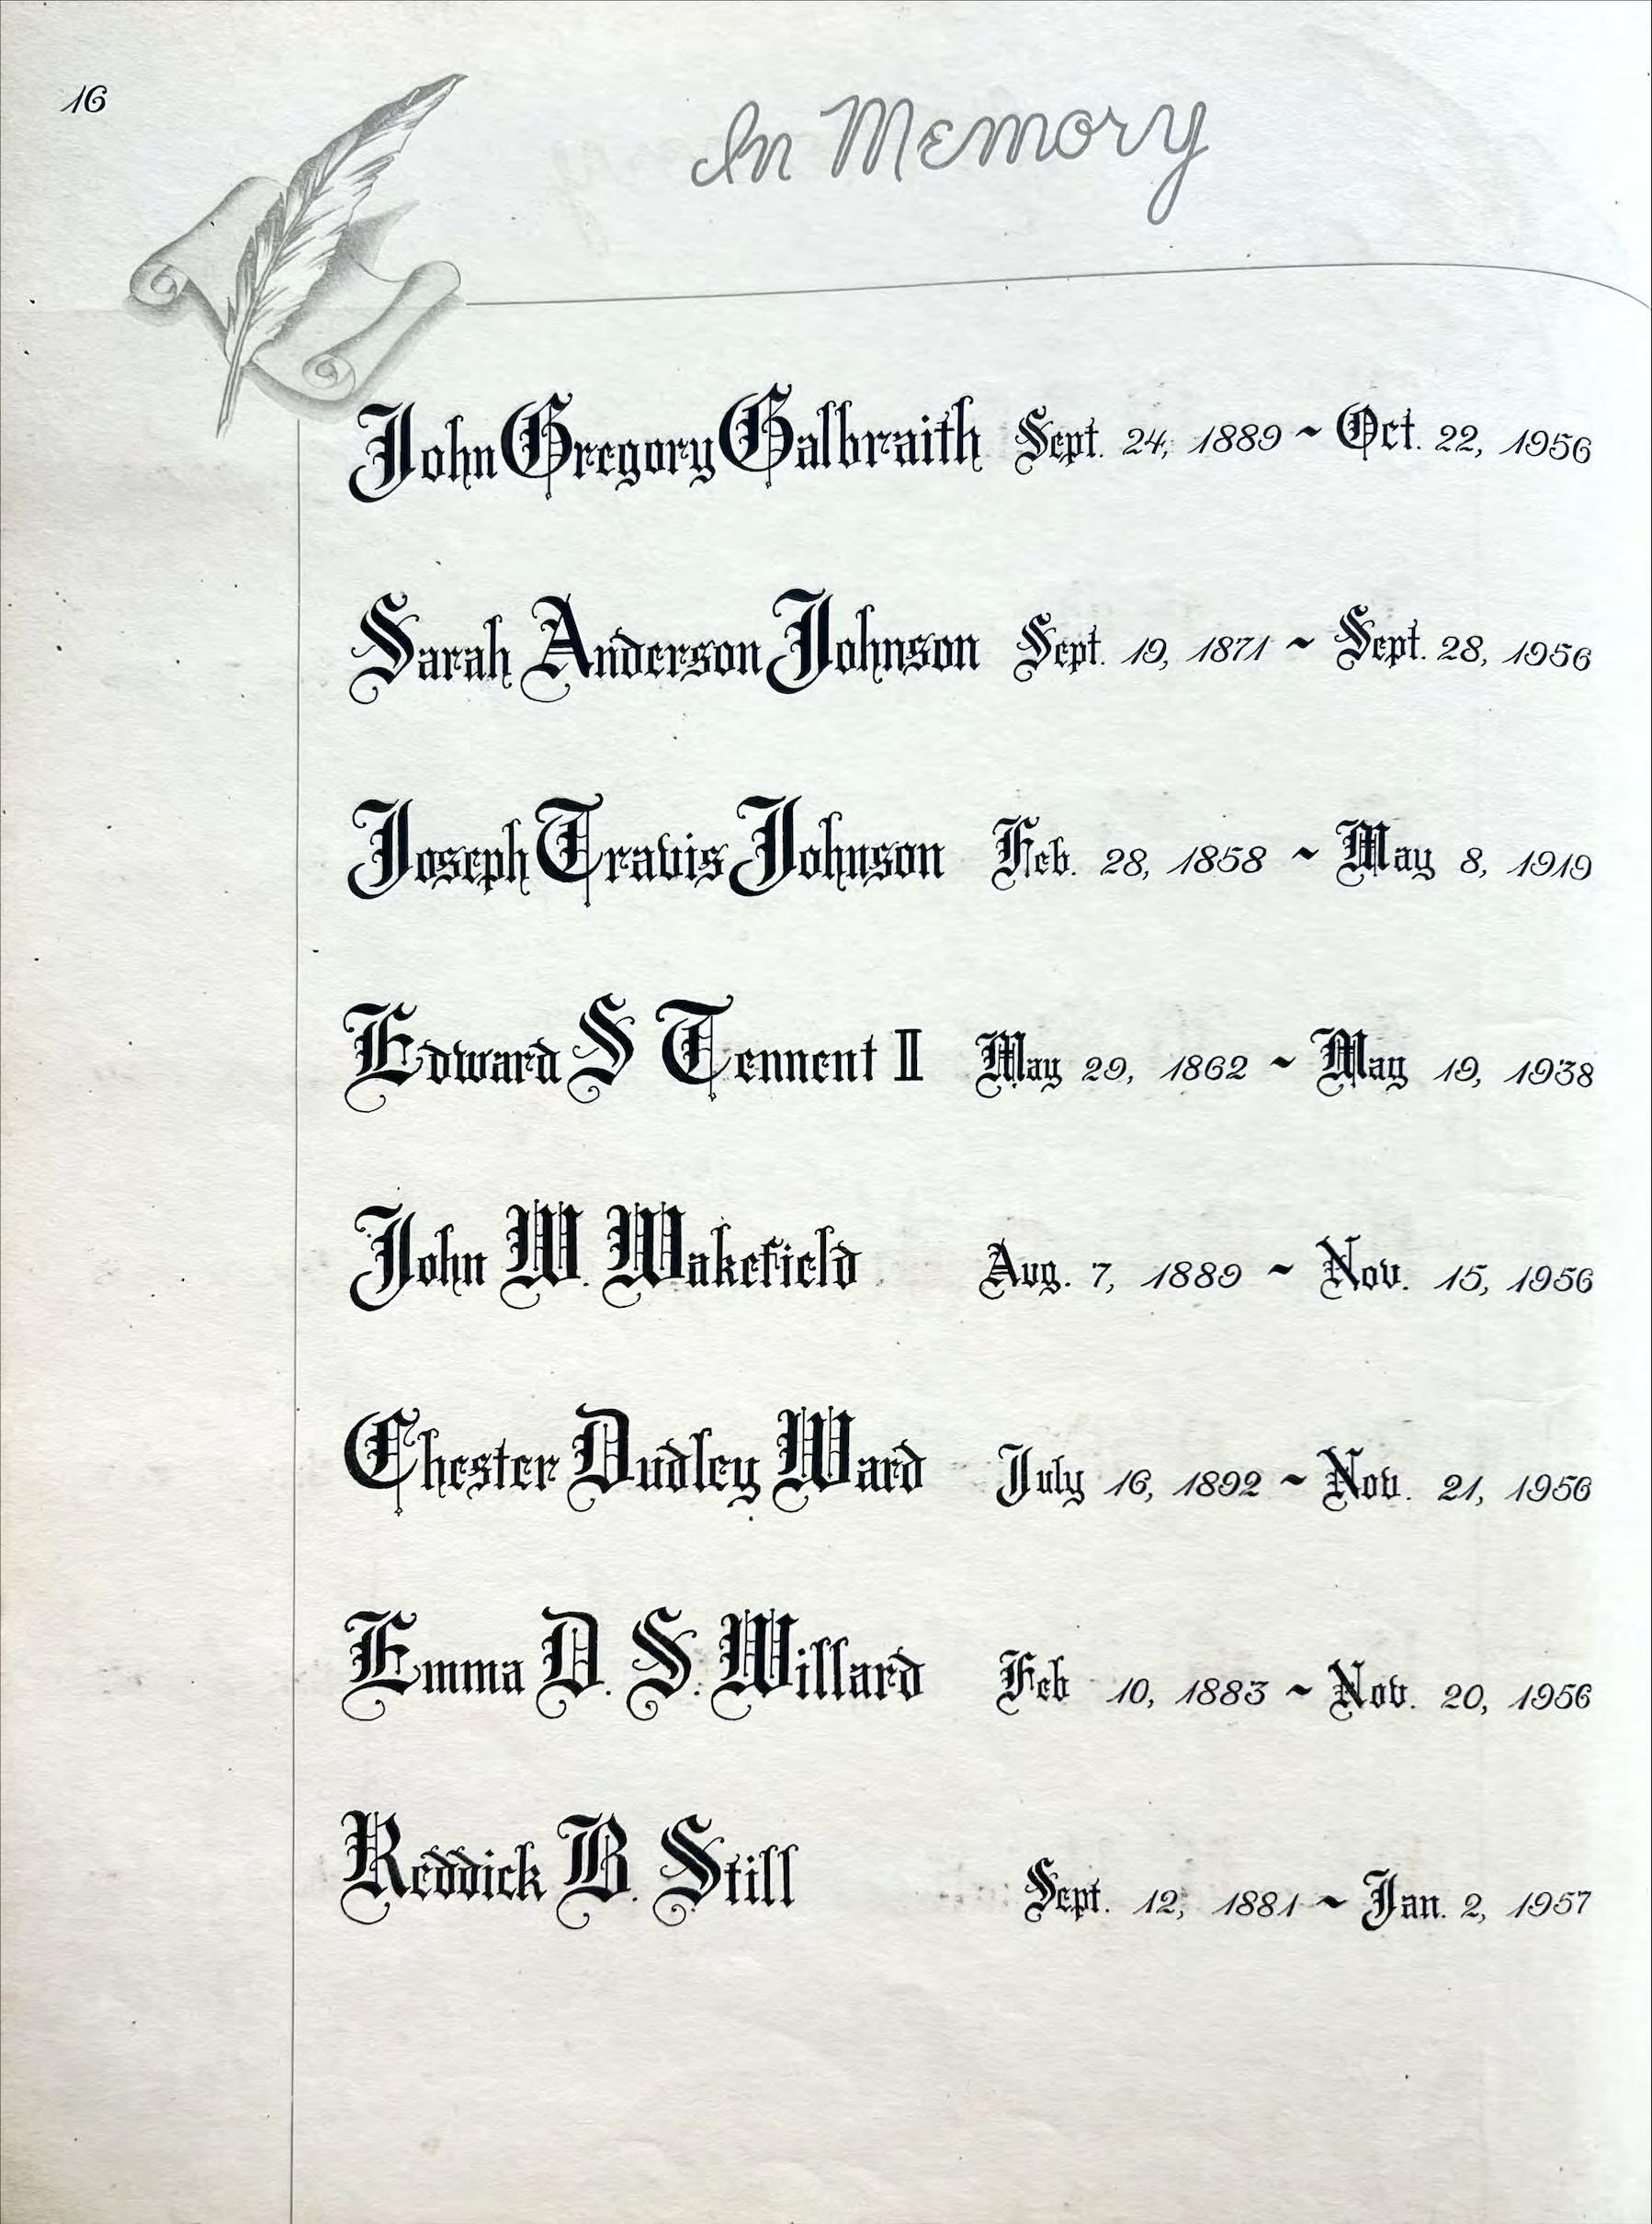 16
In Memory
John Gregory Galbraith Sept. 24, 1889 ~ Oct. 22, 1956
Sarah Anderson Johnson Sept. 19, 1871 ~ Sept. 28, 1956
Joseph Travis Johnson Feb. 28, 1858 ~ May 8, 1919
Edward S Tennent II May 29, 1862 ~ May 19, 1938
John W. Wakefield Aug. 7, 1889 ~ Nov. 15, 1956
Chester Dudley Ward July 16, 1892 ~ Nov. 21, 1956
Emma D. S. Willard Feb 10, 1883 ~ Nov. 20, 1956
Reddick B. Still Sept. 12, 1881 ~ Jan. 2, 1957